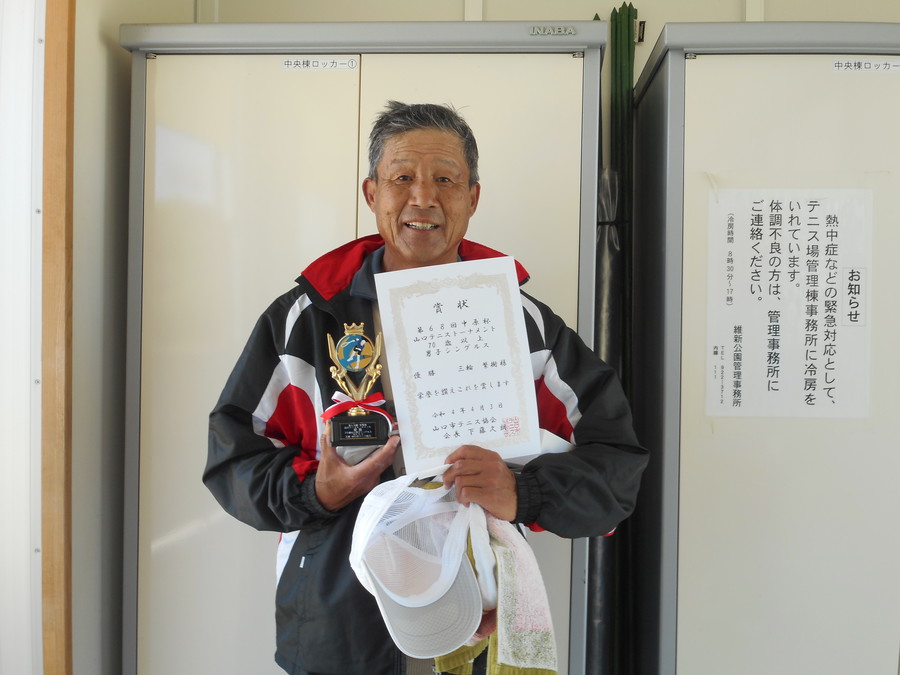 INABA
中央棟ロッカー①
中央棟ロッカー
お知らせ
熱中症などの緊急対応として、
テニス場管理棟事務所に冷房を
いれています。
体調不良の方は、管理事務所に
ご連絡ください。
(冷房時間 8時30分～17時)
維新公園管理事務所
賞状
第68回中原杯
山口テニストーナメント
70歳以上
男子シングルス
優勝 三輪 繁樹様
栄誉を讃えこれを賞します
令和4年4月3日
山口市テニス協会
会長